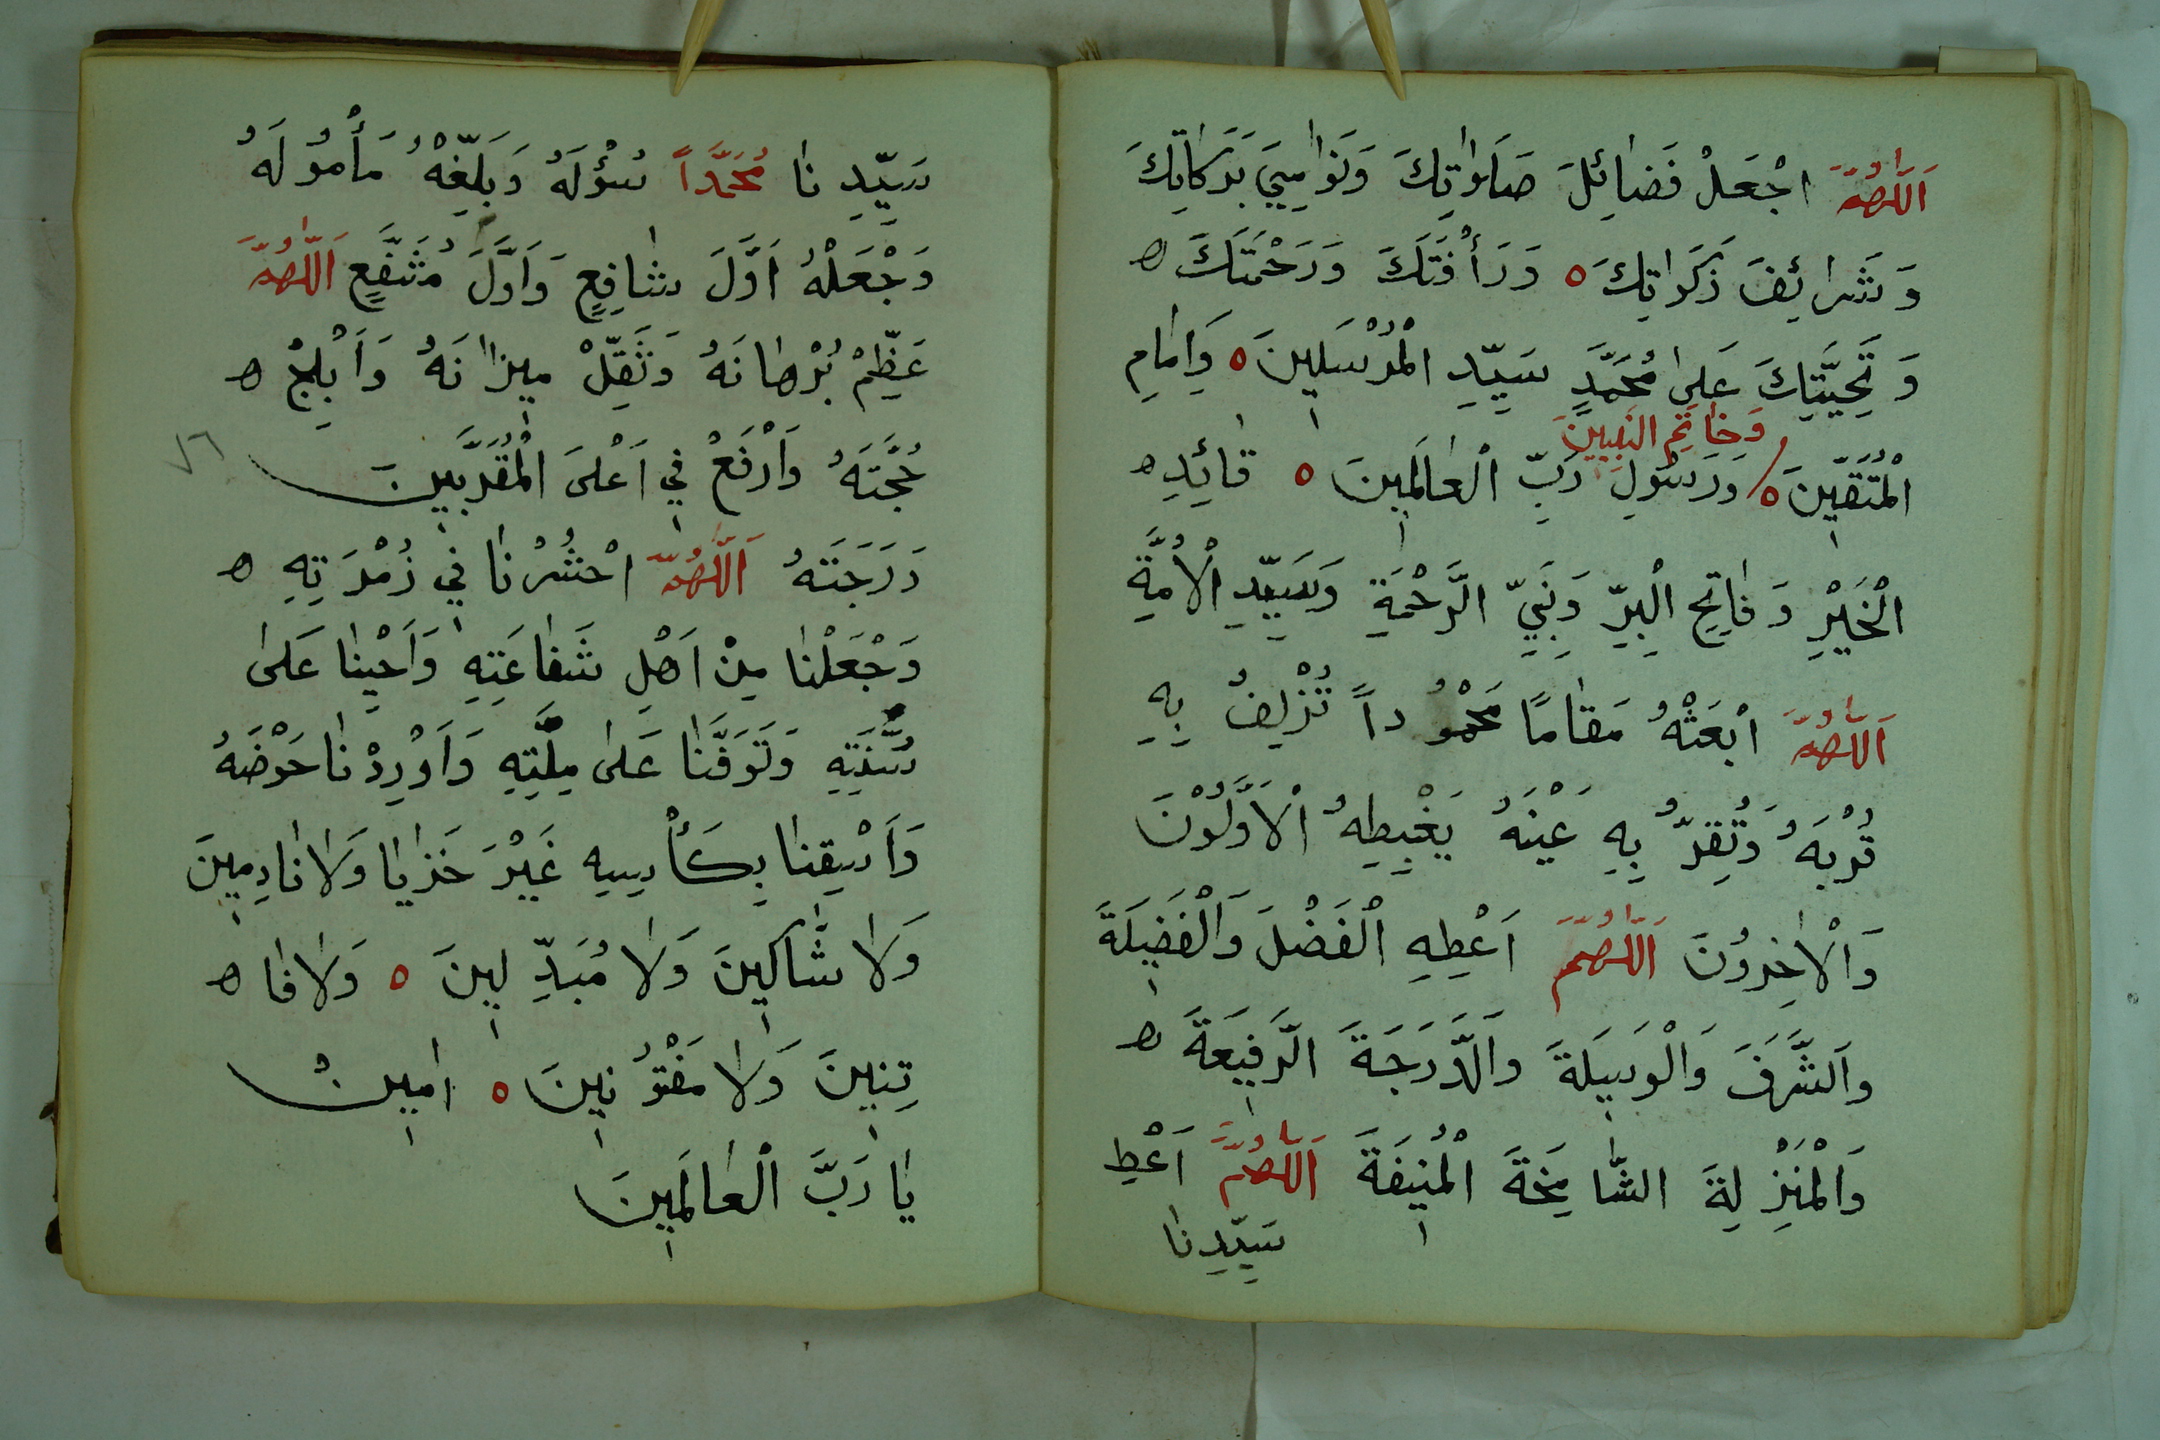 اَللّٰهُمَّ اجْعَلْ فَضٰائِلَ صَلَوٰاتِكَ وَنَوٰامِيَ بَرَكَاتِكَ
وَشَرٰائِفَ زَكَوٰاتِكَ ه وَرَأْفَتَكَ وَرَحْمَتَكَ ه
وَتَحِيَّتِكَ عَلىٰ مُحَمَّدٍ سَيِّدِ الْمُرْسَلِينَ ه وَاِمٰامِ
وَخٰاتَمِ النَبِيّينَ
الْمُتَّقِينَ ه وَرَسُولِ رَبِّ الْعٰالَمِينَ ه قٰائِدِ ه
الْخَيْرِ وَفٰاتِحِ الْبِرِّ وَنَبِيِّ الرَّحْمَةِ وَسَيِّدِ الْاُمَّةِ
اَللّٰهُمَّ ابْعَثْهُ مَقٰامًا مَحْمُوداً تُزْلِفُ بِهِ
قُرْبَهُ وَتُقِرُّ بِهِ عَيْنَهُ يَغْبِطِهُ الْاَوَّلُوْنَ
وَالْاٰخِرُونَ اَللّٰهُمَّ اَعْطِهِ الْفَضْلَ وَالْفَضِيلَةَ
وَالشَّرَفَ وَالْوَسِيلَةَ وَالدَّرَجَةَ الرَّفِيعَةَ ه
وَالْمَنْزِلَةَ الشّٰامِخَةَ الْمُنِيفَةَ اَللّٰهُمَّ اَعْطِ
سَيِّدِنٰا
سَيِّدِنٰا مُحَمَّداً سُؤْلَهُ وَبَلِّغْهُ مَأْمُولَهُ
وَجْعَلْهُ اَوَّلَ شٰافِعٍ وَاَوَّلَ مُشَفَّعٍ اَللّٰهُمَّ
عَظِّمْ بُرْهٰانَهُ وَثَقِّلْ مِيزٰانَهُ وَاَبْلِجْ ه
حُجَّتَهُ وَارْفَعْ فِي اَعْلىَ الْمُقَرَّبِينَ
دَرَجَتَهُ اَللّٰهُمَّ احْشُرْنٰا فِي زُمْرَتِهِ ه
وَجْعَلْنٰا مِنْ اَهْلِ شَفٰاعَتِهِ وَاَحْيِنٰا عَلىٰ
سُنَّتِهِ وَتَوَفَّنٰا عَلىٰ مِلَّتِهِ وَاَوْرِدْنٰا حَوْضَهُ
وَاَسْقِنٰا بِكَأْسِهِ غَيْرَ خَزٰايٰا وَلاٰ نٰادِمِينَ
وَلاٰ شٰاكِّينَ وَلاٰ مُبَدِّلِينَ ه وَلاٰ فٰا ه
تِنِينَ وَلاٰ مَفْتُونِينَ ه اٰمِينْ
يٰا رَبَّ الْعٰالَمِينَ